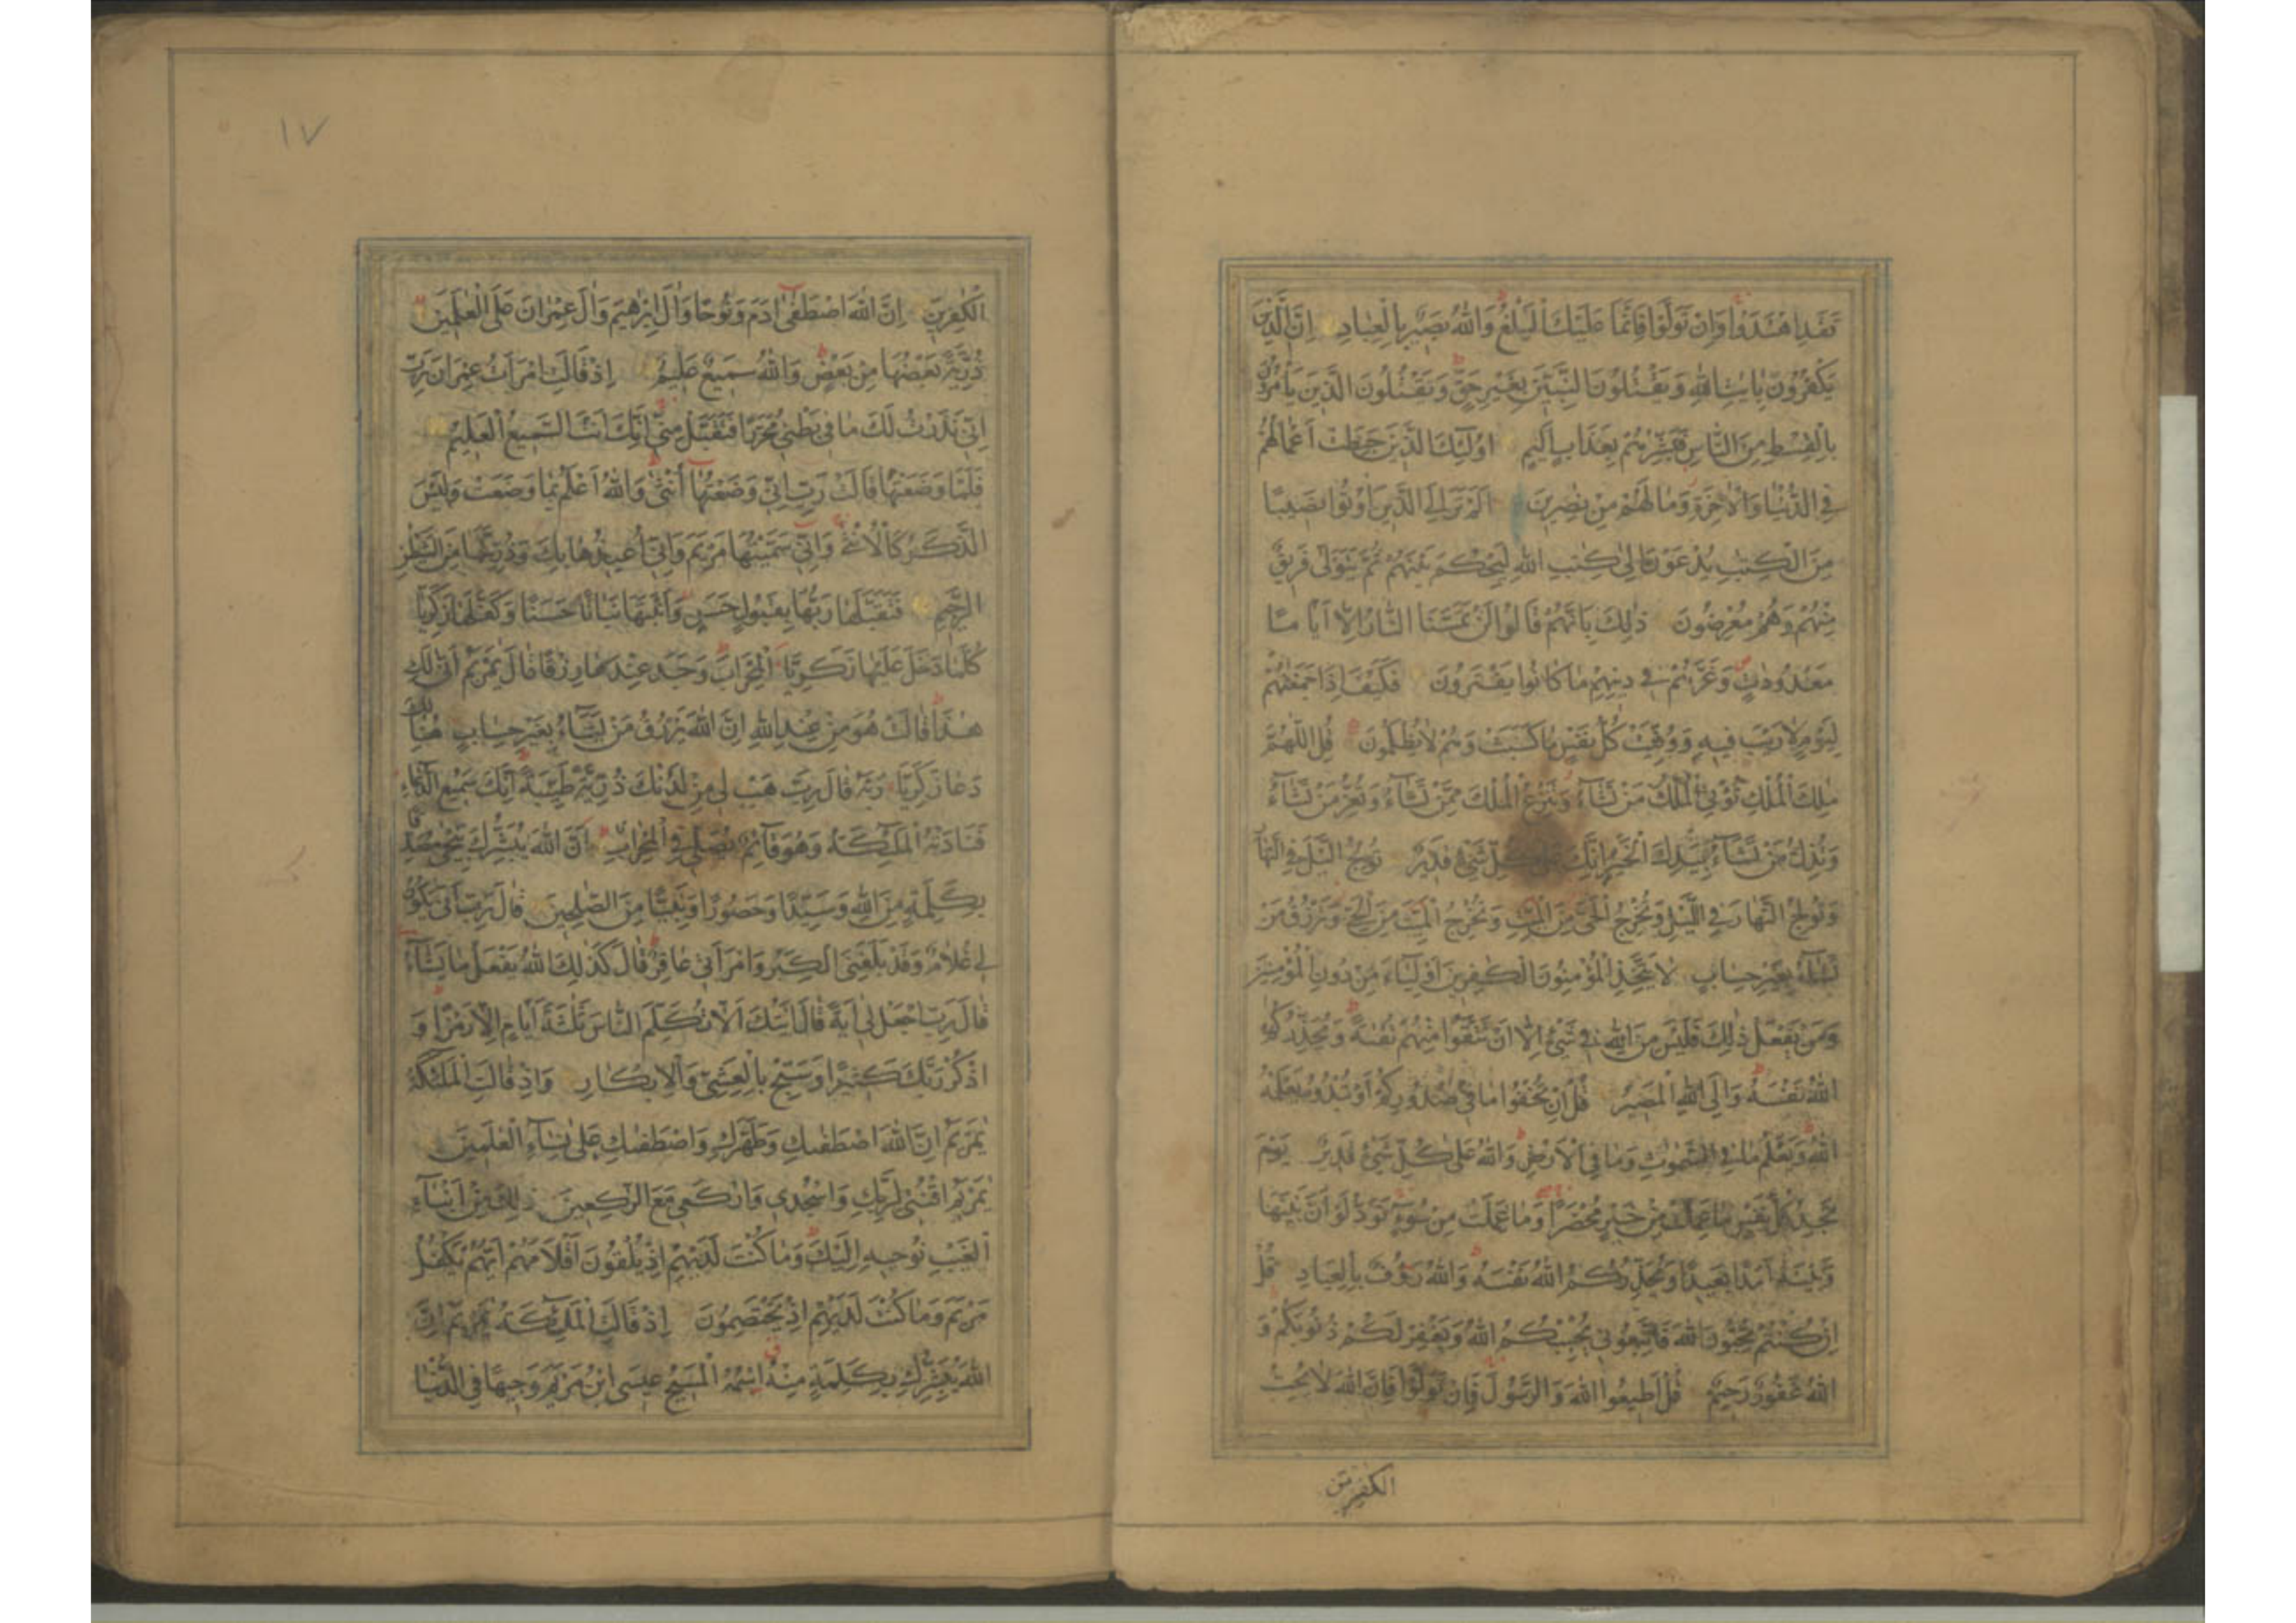 فَقَدِ اهْتَدَوْا وَاِنْ تَوَلَّوْا فَاِنَّمَا عَلَيْكَ الْبَلٰغُ وَاللّٰهُ بَصِيرٌ بِالْعِبَادِ اِنَّ الَّذِينَ
يَكْفُرُونَ بِاٰيٰتِ اللّٰهِ وَيَقْتُلُونَ النَّبِيّٖنَ بِغَيْرِ حَقٍّ وَيَقْتُلُونَ الَّذِينَ يَأْمُرُونَ
بِالْقِسْطِ مِنَ النَّاسِ فَبَشِّرْهُمْ بِعَذَابٍ اَلِيمٍ اُولٰٓئِكَ الَّذِينَ حَبِطَتْ اَعْمَالُهُمْ
فِي الدُّنْيَا وَالْاٰخِرَةِ وَمَا لَهُمْ مِنْ نٰصِرِينَ اَلَمْ تَرَ اِلَى الَّذِينَ اُوتُوا نَصِيبًا
مِنَ الْكِتٰبِ يُدْعَوْنَ اِلٰى كِتٰبِ اللّٰهِ لِيَحْكُمَ بَيْنَهُمْ ثُمَّ يَتَوَلّٰى فَرِيقٌ
مِنْهُمْ وَهُمْ مُعْرِضُونَ ذٰلِكَ بِاَنَّهُمْ قَالُوا لَنْ تَمَسَّنَا النَّارُ اِلَّا اَيَّامًا
مَعْدُودٰتٍ وَغَرَّهُمْ فِي دِينِهِمْ مَا كَانُوا يَفْتَرُونَ فَكَيْفَ اِذَا جَمَعْنٰهُمْ
لِيَوْمٍ لَا رَيْبَ فِيهِ وَوُفِّيَتْ كُلُّ نَفْسٍ مَا كَسَبَتْ وَهُمْ لَا يُظْلَمُونَ قُلِ اللّٰهُمَّ
مٰلِكَ الْمُلْكِ تُؤْتِي الْمُلْكَ مَنْ تَشَآءُ وَتَنْزِعُ الْمُلْكَ مِمَّنْ تَشَآءُ وَتُعِزُّ مَنْ تَشَآءُ
وَتُذِلُّ مَنْ تَشَآءُ بِيَدِكَ الْخَيْرُ اِنَّكَ عَلٰى كُلِّ شَيْءٍ قَدِيرٌ تُولِجُ الَّيْلَ فِي النَّهَارِ
وَتُولِجُ النَّهَارَ فِي الَّيْلِ وَتُخْرِجُ الْحَيَّ مِنَ الْمَيِّتِ وَتُخْرِجُ الْمَيِّتَ مِنَ الْحَيِّ وَتَرْزُقُ مَنْ
تَشَآءُ بِغَيْرِ حِسَابٍ لَا يَتَّخِذِ الْمُؤْمِنُونَ الْكٰفِرِينَ اَوْلِيَآءَ مِنْ دُونِ الْمُؤْمِنِينَ
وَمَنْ يَفْعَلْ ذٰلِكَ فَلَيْسَ مِنَ اللّٰهِ فِي شَيْءٍ اِلَّا اَنْ تَتَّقُوا مِنْهُمْ تُقٰىةً وَيُحَذِّرُكُمُ
اللّٰهُ نَفْسَهُ وَاِلَى اللّٰهِ الْمَصِيرُ قُلْ اِنْ تُخْفُوا مَا فِي صُدُورِكُمْ اَوْ تُبْدُوهُ يَعْلَمْهُ
اللّٰهُ وَيَعْلَمُ مَا فِي السَّمٰوٰتِ وَمَا فِي الْاَرْضِ وَاللّٰهُ عَلٰى كُلِّ شَيْءٍ قَدِيرٌ يَوْمَ
تَجِدُ كُلُّ نَفْسٍ مَا عَمِلَتْ مِنْ خَيْرٍ مُحْضَرًا وَمَا عَمِلَتْ مِنْ سُوٓءٍ تَوَدُّ لَوْ اَنَّ بَيْنَهَا
وَبَيْنَهُ اَمَدًا بَعِيدًا وَيُحَذِّرُكُمُ اللّٰهُ نَفْسَهُ وَاللّٰهُ رَؤُفٌ بِالْعِبَادِ قُلْ
اِنْ كُنْتُمْ تُحِبُّونَ اللّٰهَ فَاتَّبِعُونِي يُحْبِبْكُمُ اللّٰهُ وَيَغْفِرْ لَكُمْ ذُنُوبَكُمْ وَ
اللّٰهُ غَفُورٌ رَحِيمٌ قُلْ اَطِيعُوا اللّٰهَ وَالرَّسُولَ فَاِنْ تَوَلَّوْا فَاِنَّ اللّٰهَ لَا يُحِبُّ
الكٰفرين
١٧
الْكٰفِرِينَ اِنَّ اللّٰهَ اصْطَفٰى اٰدَمَ وَنُوحًا وَاٰلَ اِبْرٰهِيمَ وَاٰلَ عِمْرٰانَ عَلَى الْعٰلَمِينَ
ذُرِّيَّةً بَعْضُهَا مِنْ بَعْضٍ وَاللّٰهُ سَمِيعٌ عَلِيمٌ اِذْ قَالَتِ امْرَاَتُ عِمْرَانَ رَبِّ
اِنِّي نَذَرْتُ لَكَ مَا فِي بَطْنِي مُحَرَّرًا فَتَقَبَّلْ مِنِّي اِنَّكَ اَنْتَ السَّمِيعُ الْعَلِيمُ
فَلَمَّا وَضَعَتْهَا قَالَتْ رَبِّ اِنِّي وَضَعْتُهَا اُنْثٰى وَاللّٰهُ اَعْلَمُ بِمَا وَضَعَتْ وَلَيْسَ
الذَّكَرُ كَالْاُنْثٰى وَاِنِّي سَمَّيْتُهَا مَرْيَمَ وَاِنِّي اُعِيذُهَا بِكَ وَذُرِّيَّتَهَا مِنَ الشَّيْطٰنِ
الرَّجِيمِ فَتَقَبَّلَهَا رَبُّهَا بِقَبُولٍ حَسَنٍ وَاَنْبَتَهَا نَبَاتًا حَسَنًا وَكَفَّلَهَا زَكَرِيَّا
كُلَّمَا دَخَلَ عَلَيْهَا زَكَرِيَّا الْمِحْرَابَ وَجَدَ عِنْدَهَا رِزْقًا قَالَ يٰمَرْيَمُ اَنّٰى لَكِ
هٰذَا قَالَتْ هُوَ مِنْ عِنْدِ اللّٰهِ اِنَّ اللّٰهَ يَرْزُقُ مَنْ يَشَآءُ بِغَيْرِ حِسَابٍ هُنَالِكَ
دَعَا زَكَرِيَّا رَبَّهُ قَالَ رَبِّ هَبْ لِي مِنْ لَدُنْكَ ذُرِّيَّةً طَيِّبَةً اِنَّكَ سَمِيعُ الدُّعَآءِ
فَنَادَتْهُ الْمَلٰٓئِكَةُ وَهُوَ قَآئِمٌ يُصَلِّي فِي الْمِحْرَابِ اَنَّ اللّٰهَ يُبَشِّرُكَ بِيَحْيٰى مُصَدِّقًا
بِكَلِمَةٍ مِنَ اللّٰهِ وَسَيِّدًا وَحَصُورًا وَنَبِيًّا مِنَ الصّٰلِحِينَ قَالَ رَبِّ اَنّٰى يَكُونُ
لِي غُلَامٌ وَقَدْ بَلَغَنِيَ الْكِبَرُ وَامْرَاَتِي عَاقِرٌ قَالَ كَذٰلِكَ اللّٰهُ يَفْعَلُ مَا يَشَآءُ
قَالَ رَبِّ اجْعَلْ لِي اٰيَةً قَالَ اٰيَتُكَ اَلَّا تُكَلِّمَ النَّاسَ ثَلٰثَةَ اَيَّامٍ اِلَّا رَمْزًا وَ
اذْكُرْ رَبَّكَ كَثِيرًا وَسَبِّحْ بِالْعَشِيِّ وَالْاِبْكَارِ وَاِذْ قَالَتِ الْمَلٰٓئِكَةُ
يٰمَرْيَمُ اِنَّ اللّٰهَ اصْطَفٰىكِ وَطَهَّرَكِ وَاصْطَفٰىكِ عَلٰى نِسَآءِ الْعٰلَمِينَ
يٰمَرْيَمُ اقْنُتِي لِرَبِّكِ وَاسْجُدِي وَارْكَعِي مَعَ الرّٰكِعِينَ ذٰلِكَ مِنْ اَنْبَآءِ
الْغَيْبِ نُوحِيهِ اِلَيْكَ وَمَا كُنْتَ لَدَيْهِمْ اِذْ يُلْقُونَ اَقْلَامَهُمْ اَيُّهُمْ يَكْفُلُ
مَرْيَمَ وَمَا كُنْتَ لَدَيْهِمْ اِذْ يَخْتَصِمُونَ اِذْ قَالَتِ الْمَلٰٓئِكَةُ يٰمَرْيَمُ اِنَّ
اللّٰهَ يُبَشِّرُكِ بِكَلِمَةٍ مِنْهُ اسْمُهُ الْمَسِيحُ عِيسَى ابْنُ مَرْيَمَ وَجِيهًا فِي الدُّنْيَا